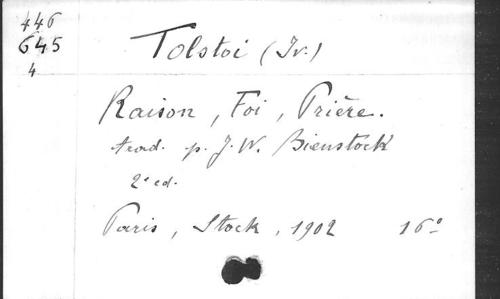 446
645
4
Tolstoi (Iv.)
Raison, Foi, Prière.
trad. p. J. W. Bienstock
2e ed.
Paris, Stock, 1902 16°